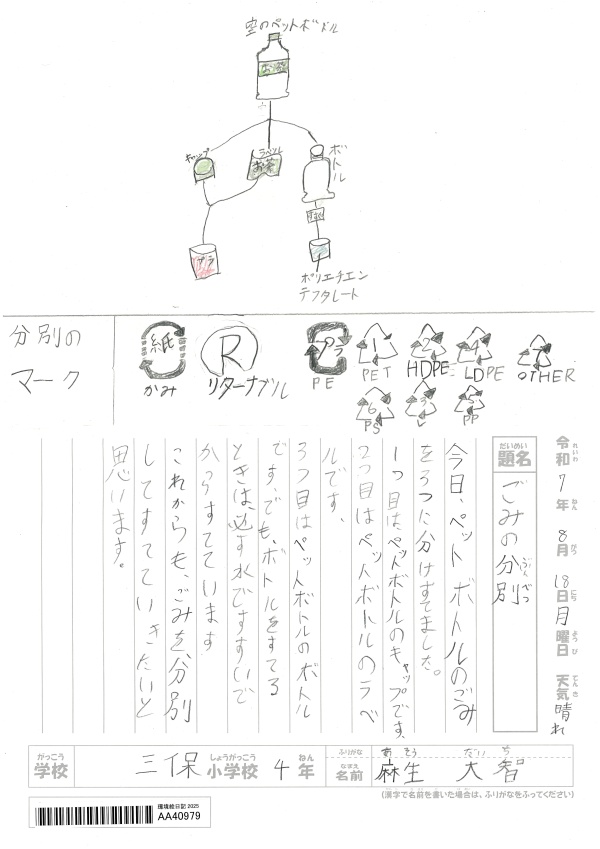 空のペットボトル
お茶
キャップ
ラベル
お茶
ボトル
プラ
ポリエチエン
テフタレート
分別の
マーク
紙
かみ
R
リターナブル
プラ
PE
1
PET
2
HDPE
4
LDPE
7
OTHER
6
PS
3
V
5
PP
令和7年8月18日月曜日 天気晴れ
れいわ ねん がつ にち ようび てんき
だいめい
題名
ごみの分別
ぶんべつ
今日、ペットボトルのごみ
を3つに分けすてました。
1つ目は、ペットボトルのキャップです。
2つ目はペットボトルのラベ
ルです、
3つ目はペットボトルのボトル
です、でも、ボトルをすてる
ときは、必す水ですすいで
からすてています
これからも、ごみを分別
してすてていきたいと
思います。
がっこう しょうがっこう ねん
学校 三保小学校 4年
ふりがな あそう だいち
なまえ
名前 麻生 大智
(漢字で名前を書いた場合は、ふりがなをふってください)
環境絵日記 2025
AA40979